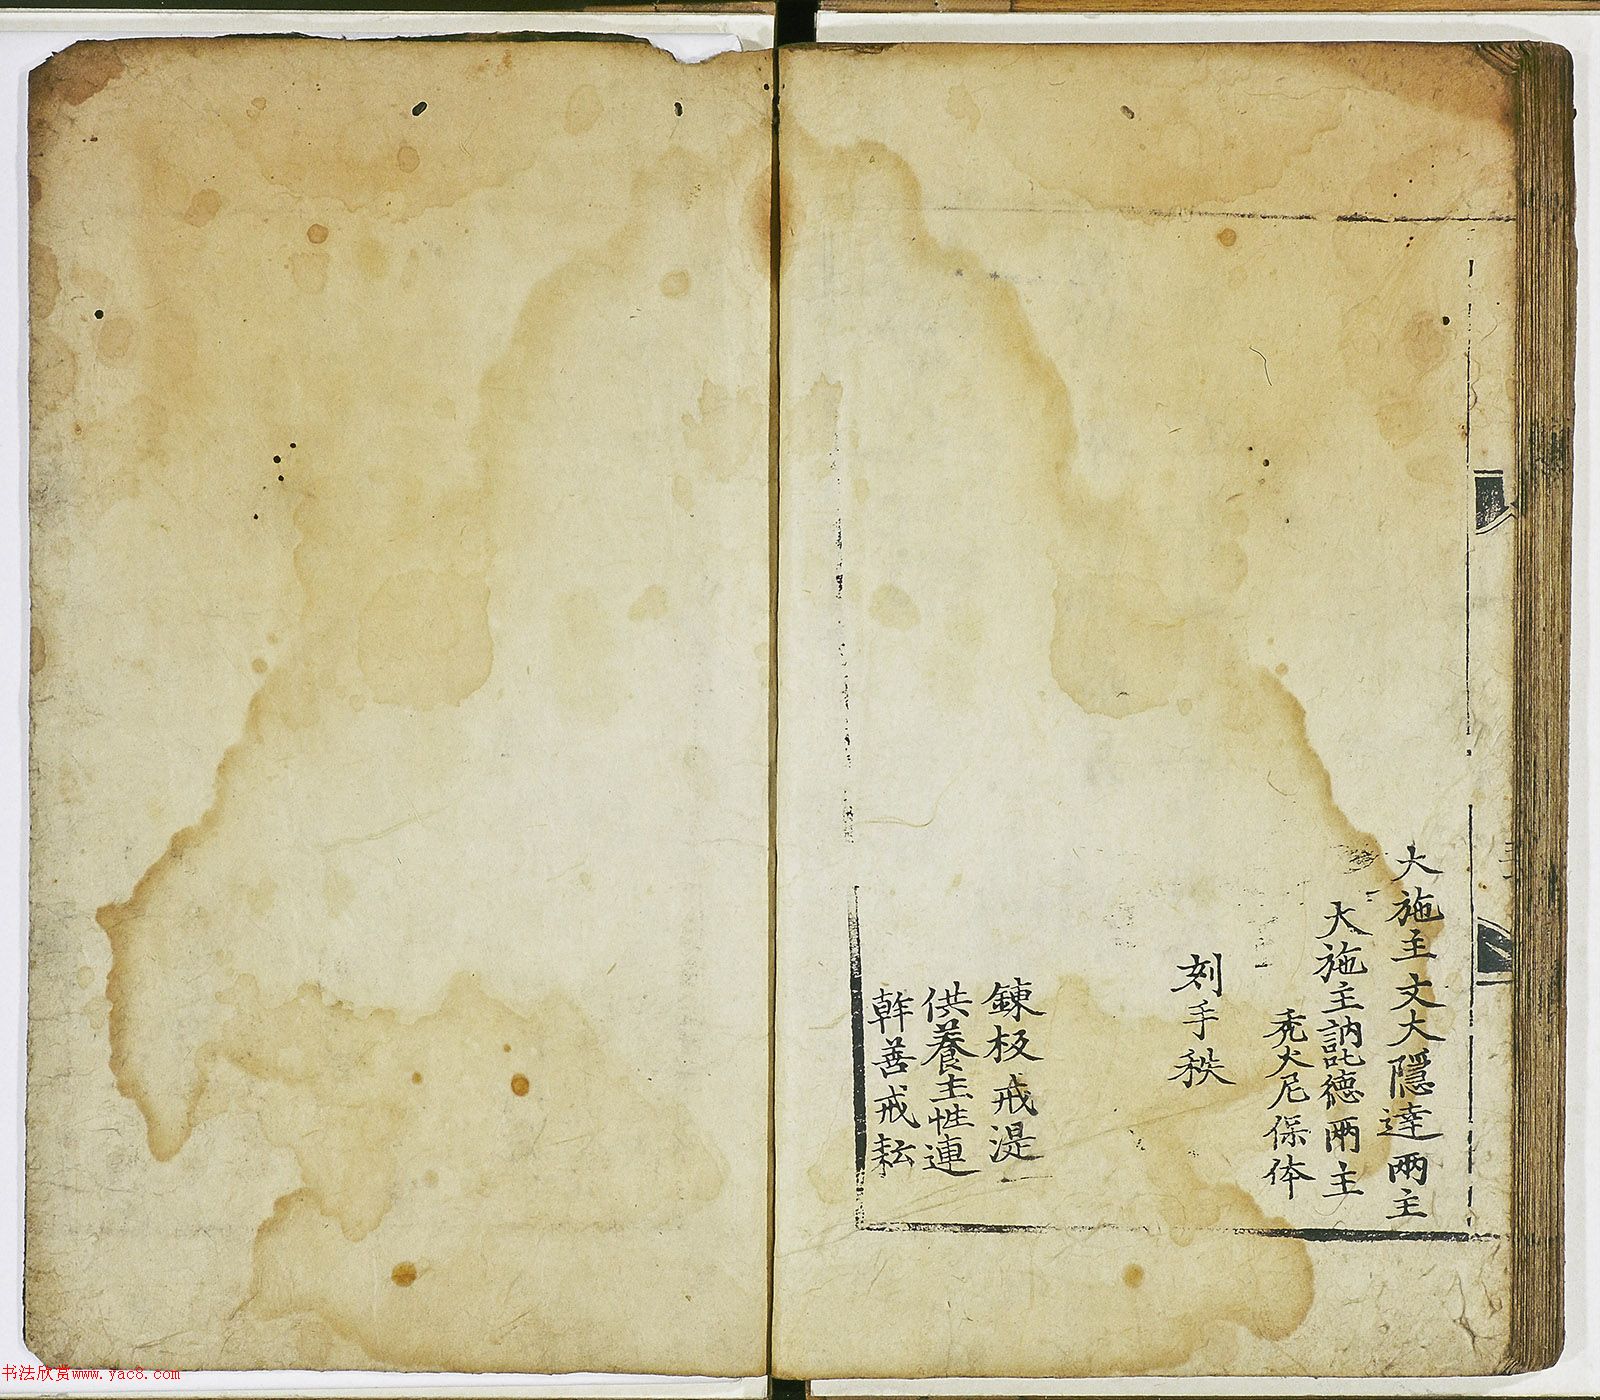 大施主文大隱達兩主
大施主訥訖德兩主
禿大尼保体
刻手秩
鍊板戒湜
供養主性連
幹善戒耘
书法欣赏www.yac8.com